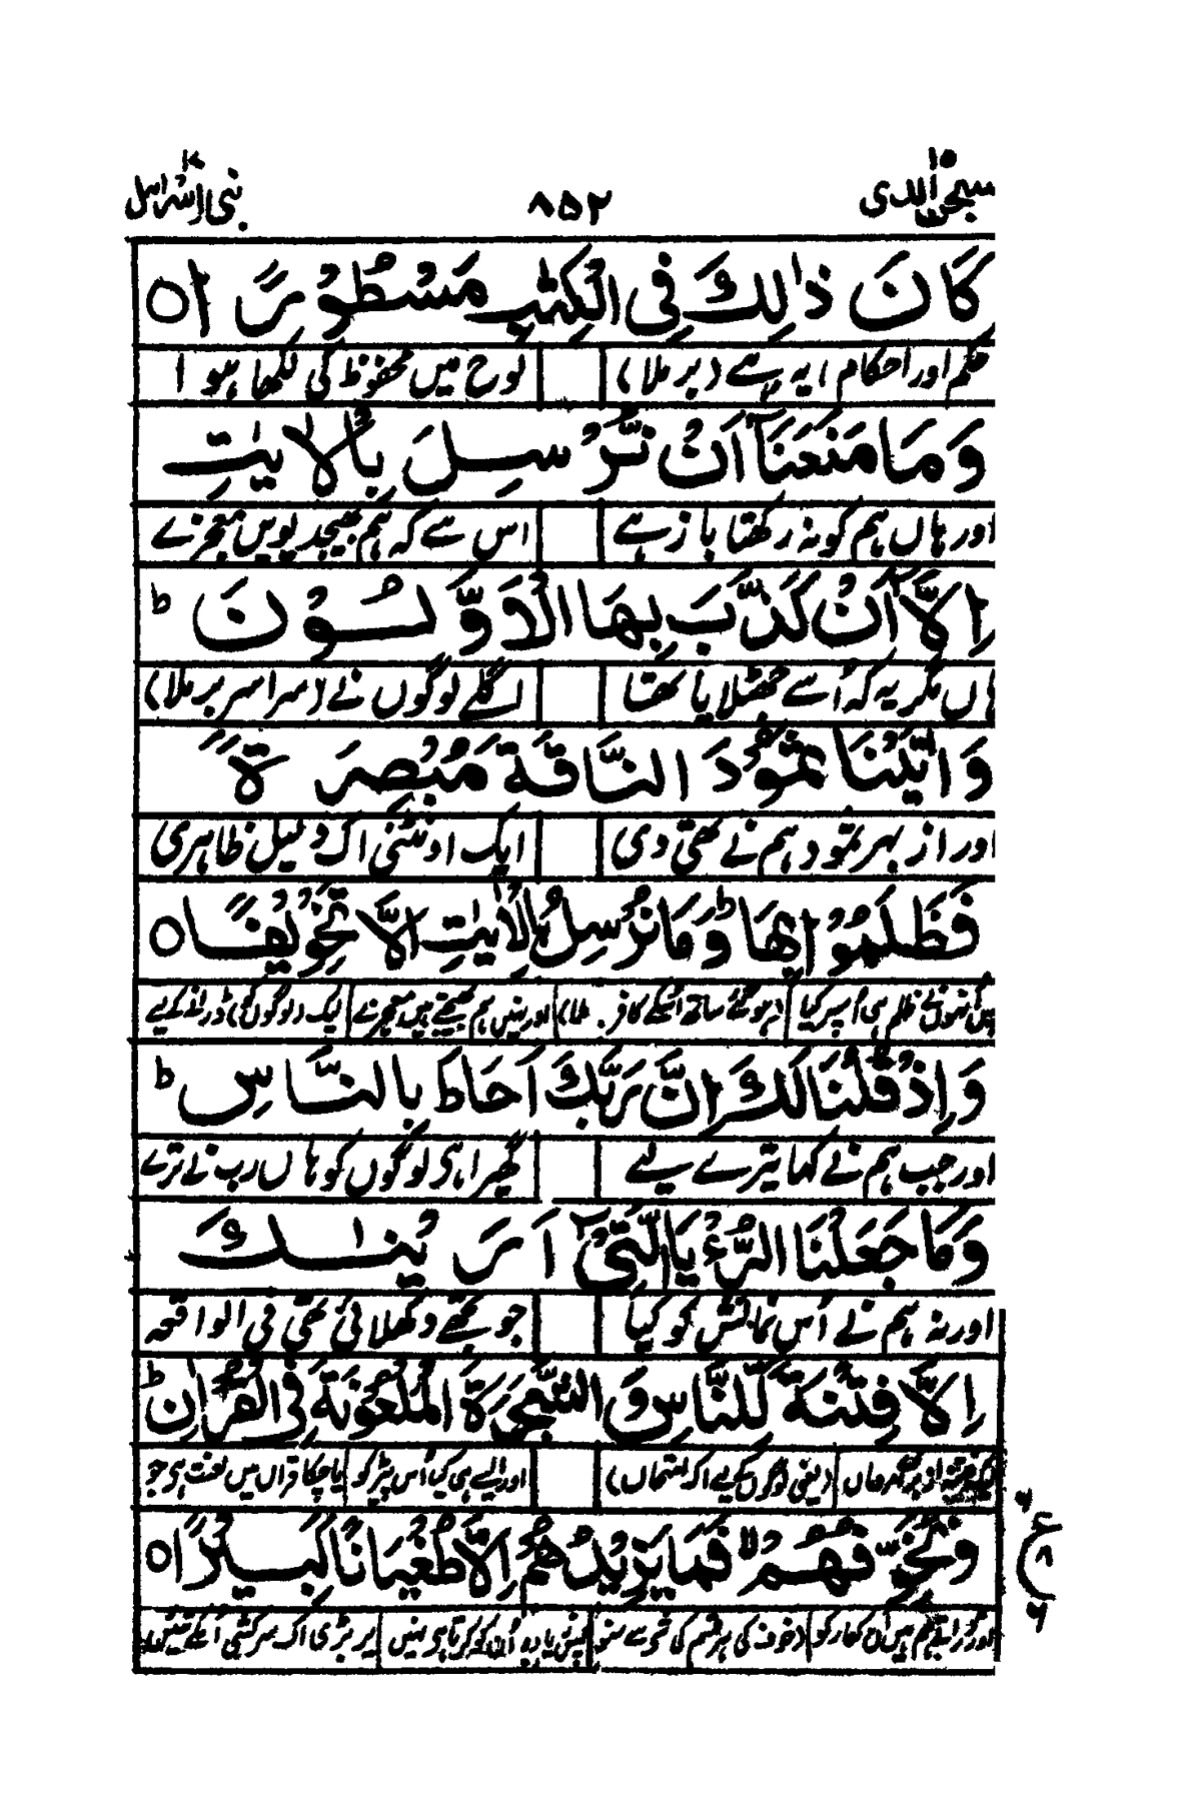 سبحن الذی ۱۵ ۸۵۲ بنی اسرائیل ۱۷
كَانَ ذٰلِكَ فِی الْكِتٰبِ مَسْطُوْرًا ○
حکم اور احکام ا یہ ہے (بر ملا) لوح میں محفوظ کی لکھا ہوا
وَمَا مَنَعَنَآ اَنْ نُّرْسِلَ بِالْاٰیٰتِ
اور ہاں ہم کو نہ رکھتا باز ہے اس سے کہ ہم بھیجدیویں معجزے
اِلَّآ اَنْ كَذَّبَ بِهَا الْاَوَّلُوْنَ ؕ
ہاں مگر یہ کہ اُسے جھٹلایا تھا اگلے لوگوں نے (سراسر بر ملا)
وَاٰتَیْنَا ثَمُوْدَ النَّاقَةَ مُبْصِرَةً
اور از بہر ثمود ہم نے تھی دی ایک اونٹنی اک دلیل ظاہری
فَظَلَمُوْا بِهَا ؕ وَمَا نُرْسِلُ بِالْاٰیٰتِ اِلَّا تَخْوِیْفًا ○
ظلم ہی اُسپر کیا (ہو گئے ساتھ اُسکے کافر بر ملا) اور نہیں ہم بھیجتے ہیں معجزے لیک (لوگوں کو) ڈرانے کے لیے
وَاِذْ قُلْنَا لَكَ اِنَّ رَبَّكَ اَحَاطَ بِالنَّاسِ ؕ
اور جب ہم نے کہا تیرے لیے گھیرا ہی لوگوں کو ہاں رب نے ترے
وَمَا جَعَلْنَا الرُّءْیَا الَّتِیْٓ اَرَیْنٰكَ
اور نہ ہم نے اُس نمائش کو کیا جو تجھے دکھلائی تھی فی الواقعہ
اِلَّا فِتْنَةً لِّلنَّاسِ وَالشَّجَرَةَ الْمَلْعُوْنَةَ فِی الْقُرْاٰنِ ؕ
(یعنی لوگوں کے لیے اک امتحاں) اور ایسے ہی کیا اُس پیڑ کو پا چکا قرآں میں لعنت ہی جو
وَنُخَوِّفُهُمْ ۙ فَمَا یَزِیْدُهُمْ اِلَّا طُغْیَانًا كَبِیْرًا ○
اور ڈراتے ہم ہیں ان کفار کو (خوف کی ہر قسم کی شرح سے سنو) پر بڑی اک سرکشی
ع ۶ ۸ ۶